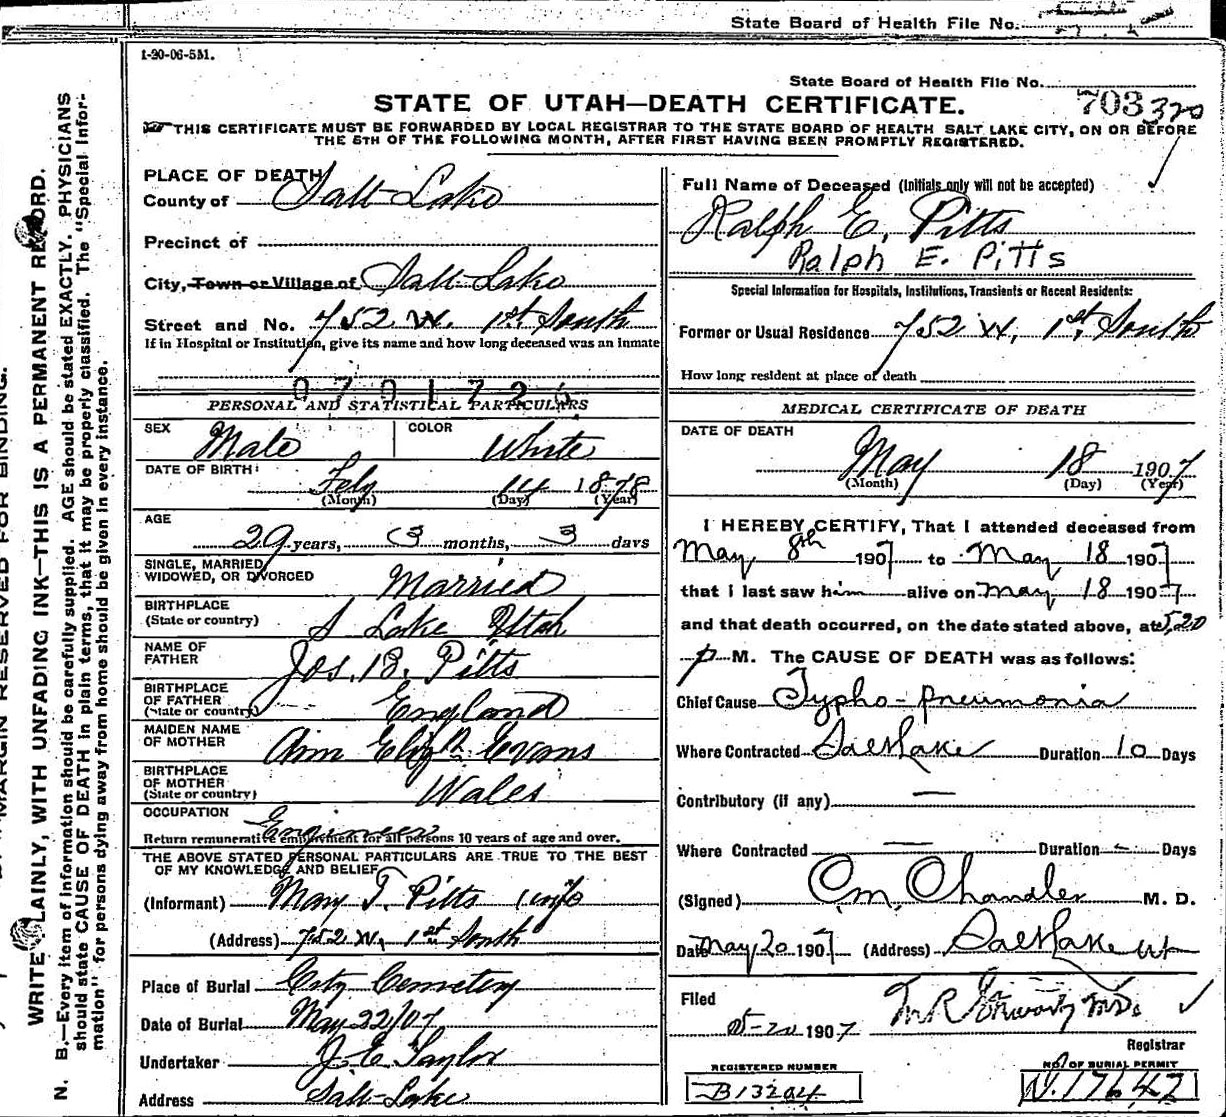 State Board of Health File No.
1-20-06-5M.
State Board of Health File No. 703 320
STATE OF UTAH—DEATH CERTIFICATE.
THIS CERTIFICATE MUST BE FORWARDED BY LOCAL REGISTRAR TO THE STATE BOARD OF HEALTH SALT LAKE CITY, ON OR BEFORE
THE 5TH OF THE FOLLOWING MONTH, AFTER FIRST HAVING BEEN PROMPTLY REGISTERED.
PLACE OF DEATH
County of Salt Lake
Precinct of
City, Town or Village of Salt Lake
Street and No. 752 W. 1st South
If in Hospital or Institution, give its name and how long deceased was an inmate
PERSONAL AND STATISTICAL PARTICULARS
SEX Male COLOR White
DATE OF BIRTH: Feby 14 1878
(Month) (Day) (Year)
AGE
29 years, 3 months, 3 days
SINGLE, MARRIED,
WIDOWED, OR DIVORCED Married
BIRTHPLACE
(State or country) S Lake Utah
NAME OF
FATHER Jos. B. Pitts
BIRTHPLACE
OF FATHER
(State or country) England
MAIDEN NAME
OF MOTHER Ann Elizth Evans
BIRTHPLACE
OF MOTHER
(State or country) Wales
OCCUPATION Engineer
Return remunerative employment for all persons 10 years of age and over.
THE ABOVE STATED PERSONAL PARTICULARS ARE TRUE TO THE BEST
OF MY KNOWLEDGE AND BELIEF
(Informant) Mary T. Pitts (wife
(Address) 752 W. 1st South
Place of Burial City Cemetery
Date of Burial May 22/07
Undertaker J. E. Taylor
Address Salt Lake
Full Name of Deceased (Initials only will not be accepted)
Ralph E. Pitts
Ralph E. Pitts
Special Information for Hospitals, Institutions, Transients or Recent Residents:
Former or Usual Residence 752 W. 1st South
How long resident at place of death
MEDICAL CERTIFICATE OF DEATH
DATE OF DEATH
May 18 1907
(Month) (Day) (Year)
I HEREBY CERTIFY, That I attended deceased from
May 8th 1907 to May 18 1907
that I last saw him alive on May 18 1907
and that death occurred, on the date stated above, at 5.20
p M. The CAUSE OF DEATH was as follows:
Chief Cause Typho-pneumonia
Where Contracted Salt Lake Duration 10 Days
Contributory (if any) —
Where Contracted — Duration - Days
(Signed) C. M. Chandler M. D.
Date May 20 1907 (Address) Salt Lake Ut
Filed
5-20 1907
Registrar
REGISTERED NUMBER
B13204
NO. OF BURIAL PERMIT
N. 17642
MARGIN RESERVED FOR BINDING.
WRITE PLAINLY, WITH UNFADING INK—THIS IS A PERMANENT RECORD.
N. B.—Every item of information should be carefully supplied. AGE should be stated EXACTLY. PHYSICIANS
should state CAUSE OF DEATH in plain terms, that it may be properly classified. The "Special Infor-
mation" for persons dying away from home should be given in every instance.